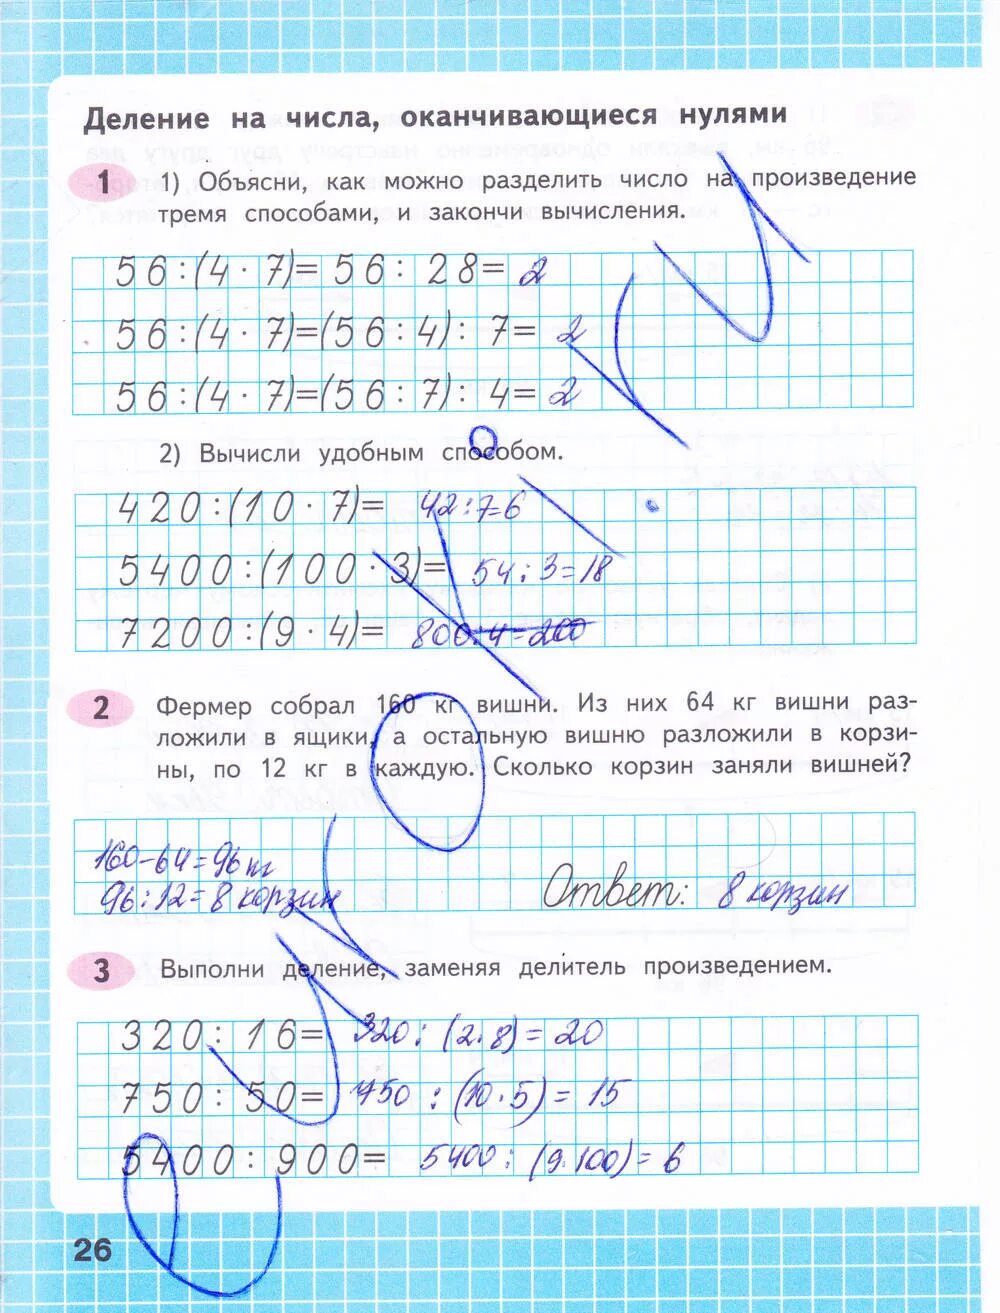 Деление на числа, оканчивающиеся нулями
1 1) Объясни, как можно разделить число на произведение
тремя способами, и закончи вычисления.
56:(4·7)=56:28=2
56:(4·7)=(56:4):7=2
56:(4·7)=(56:7):4=2
2) Вычисли удобным способом.
420:(10·7)= 42:7=6
5400:(100·3)= 54:3=18
7200:(9·4)= 800:4=200
2 Фермер собрал 160 кг вишни. Из них 64 кг вишни раз-
ложили в ящики, а остальную вишню разложили в корзи-
ны, по 12 кг в каждую. Сколько корзин заняли вишней?
160-64=96кг
96:12=8 корзин Ответ: 8 корзин
3 Выполни деление, заменяя делитель произведением.
320:16= 320:(2·8)=20
750:50= 750:(10·5)=15
5400:900= 5400:(9·100)=6
26